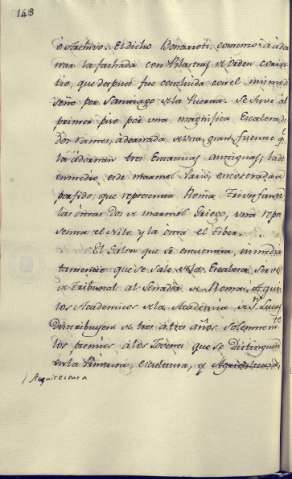 148
o Archivo. El dicho Bonarroti, comenzó à ador
nar la fachada con Pilastras de orden Corin
tio, que despues fue concluida con el mismo di
seño por Santiago de la Puerta. Se sirve al
primer piso por una magnifica Escalera de
dos ramos, adornada de una gran fuente q.e
la adornan tres Estatuas antiguas; la de
enmedio es de marmol Pario, encorvada en
porfido, que representa Roma Triunfante
las otras dos de marmol Griego, una repre
senta el Nilo y la otra el Tiber.
El Salon que se encuentra, inmedia
tamente que se sale de la Escalera sirve
de Tribunal al Senador de Roma, el qu
los Academicos de la Academia de S.n Lucas
Distribuyen de tres à tres años solemnem.te
los premios à los Jovenes que se distinguen
en la Pintura, Escultura, y
/ Arquitectura